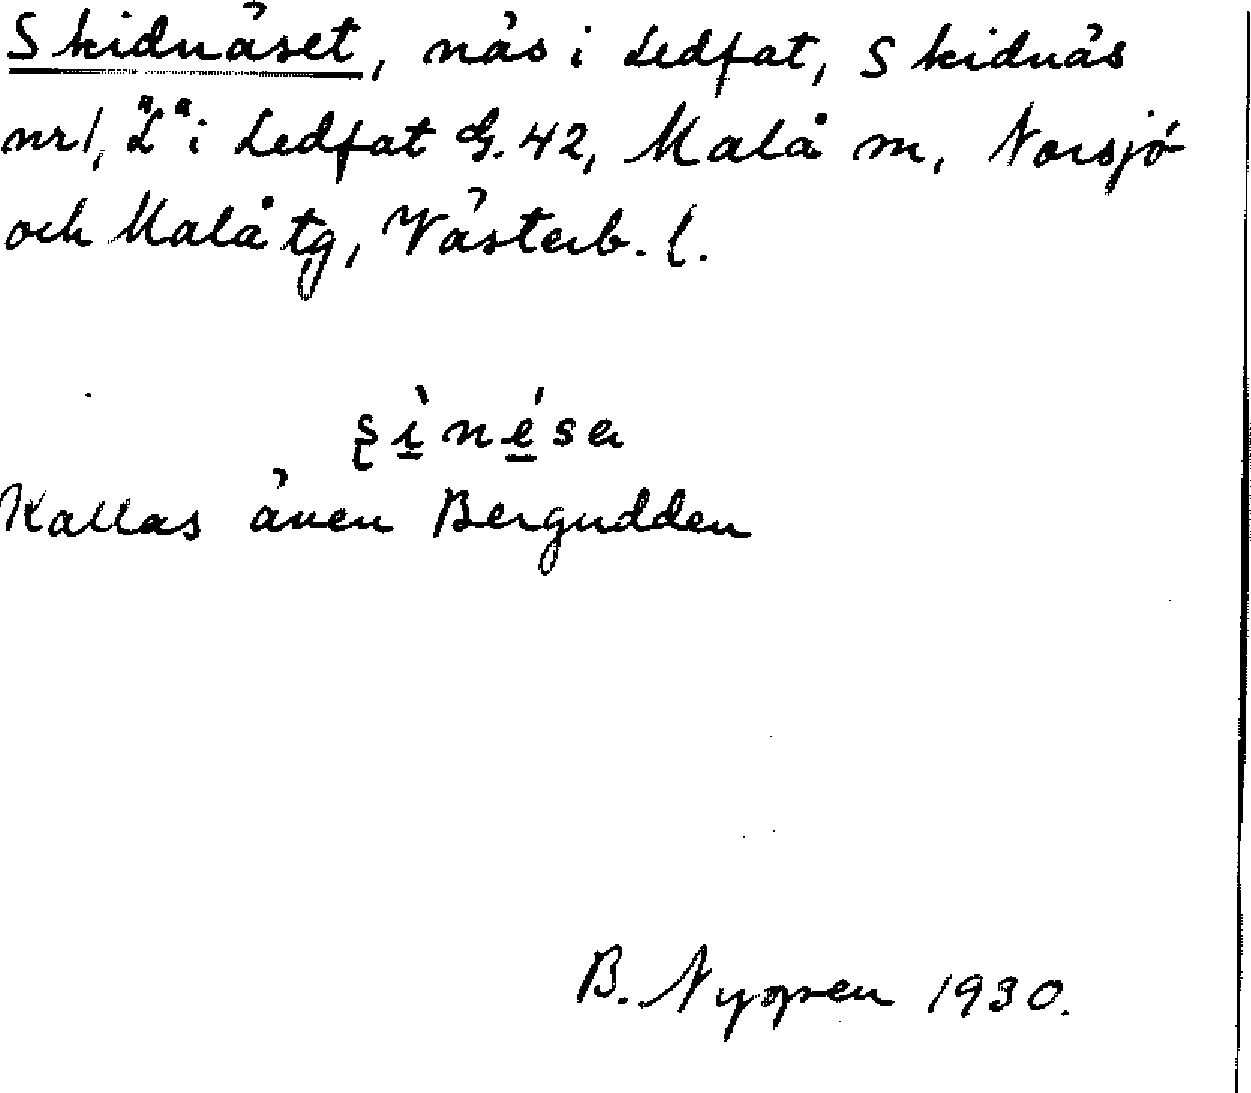 Skidnäset, näs i Ledfat, Skidnäs
nr 1, "L" i Ledfat G. 42, Malå m, Norsjö
och Malå tg, Västerb. l.
Kallas även Bergudden
B. 1930.